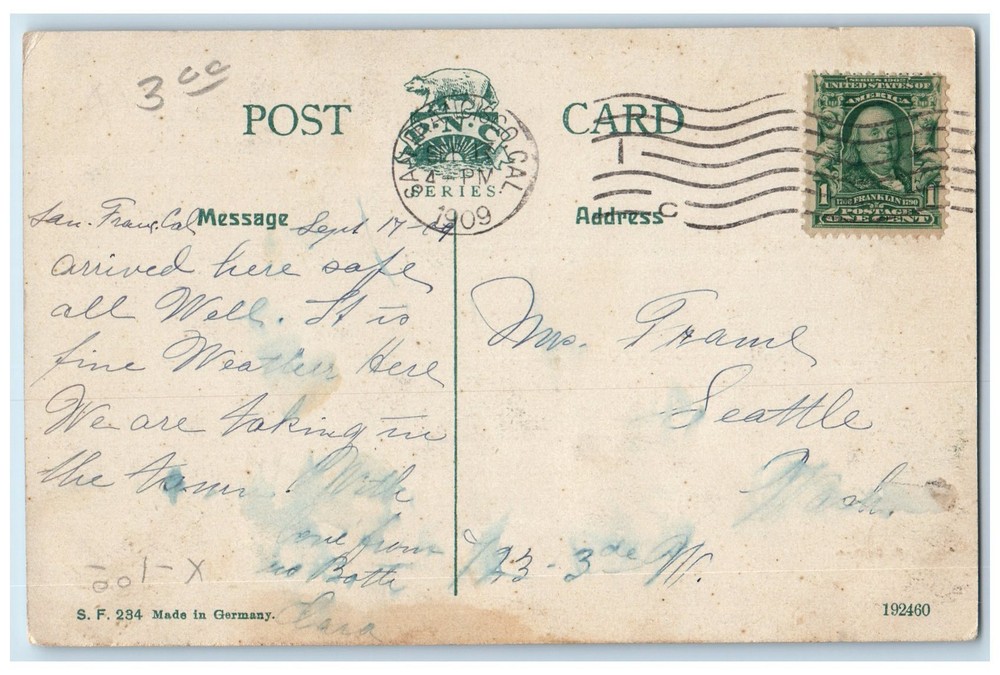 3 00
POST CARD
P·N·C
SERIES.
SAN FRANCISCO, CAL.
4-PM
1909
SERIES 1902
UNITED STATES OF
AMERICA
1 1
1706 FRANKLIN 1790
POSTAGE
ONE CENT
C
Message
Address
San. Franc, Cal Sept 17-09
arrived here safe
all Well. It is
fine Weather Here
We are taking in
the town. With
love from
us Both
Clara
Mrs. Frame
Seattle
Wash.
723-3rde W.
X-100-
S. F. 234 Made in Germany.
192460